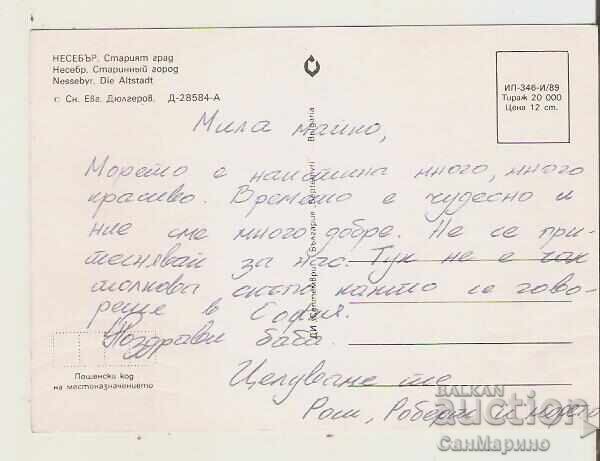 НЕСЕБЪР. Старият град
Несебр. Старинный город
Nessebyr. Die Altstadt
Сн. Евг. Дюлгеров. Д-28584-А
ИП-346-И/89
Тираж 20 000
Цена 12 ст.
Мила майко,
Морето е наистина много, много
красиво. Времето е чудесно и
ние сме много добре. Не се при-
теснявай за нас. Тук не е чак
толкова скъпо както се гово-
реше в София.
Поздрави баба.
Целуваме те
Роси, Роберт и морето
ДИ „Септември“ България Bulgaria
Пощенски код
на местоназначението
BALKAN
auction
СанМарино